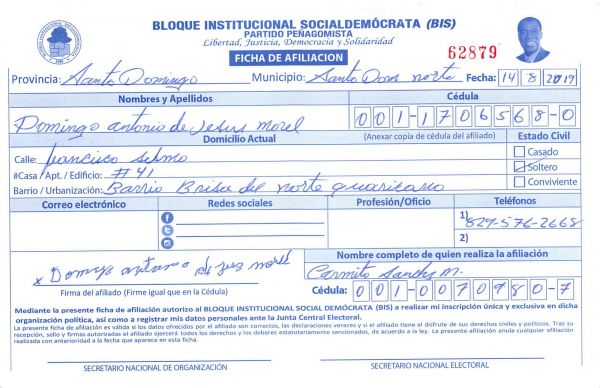 BLOQUE INSTITUCIONAL SOCIALDEMÓCRATA (BIS)
PARTIDO PEÑAGOMISTA
Libertad, Justicia, Democracia y Solidaridad
FICHA DE AFILIACION
62879
Provincia: Santo Domingo Municipio: Santo Dom norte Fecha: 14-8-2019
Nombres y Apellidos Cédula
Domingo antonio de Jesus morel 001-1706568-0
Domicilio Actual (Anexar copia de cédula del afiliado) Estado Civil
Calle: francisco selmo Casado
#Casa / Apt. / Edificio: #41 Soltero
Barrio / Urbanización: Barrio Brisa del norte guaricano Conviviente
Correo electrónico Redes sociales Profesión/Oficio Teléfonos
1) 829-576-2668
2)
x Domingo antonio de jesus morel
Nombre completo de quien realiza la afiliación
Carmito Sanchez M.
Firma del afiliado (Firme igual que en la Cédula) Cédula: 001-0070980-7
Mediante la presente ficha de afiliación autorizo al BLOQUE INSTITUCIONAL SOCIAL DEMÓCRATA (BIS) a realizar mi inscripción única y exclusiva en dicha
organización política, así como a registrar mis datos personales ante la Junta Central Electoral.
La presente ficha de afiliación es válida si los datos ofrecidos por el afiliado son correctos, las declaraciones veraces y si el afiliado tiene el disfrute de sus derechos civiles y políticos. Tras su
recepción, sello y firmas autorizadas el afiliado ejercerá todos los derechos y los deberes estatutariamente sancionados, de acuerdo a la ley. La presente afiliación anula cualquier afiliación
realizada con anterioridad a la fecha que aparece en esta ficha.
SECRETARIO NACIONAL DE ORGANIZACIÓN SECRETARIO NACIONAL ELECTORAL